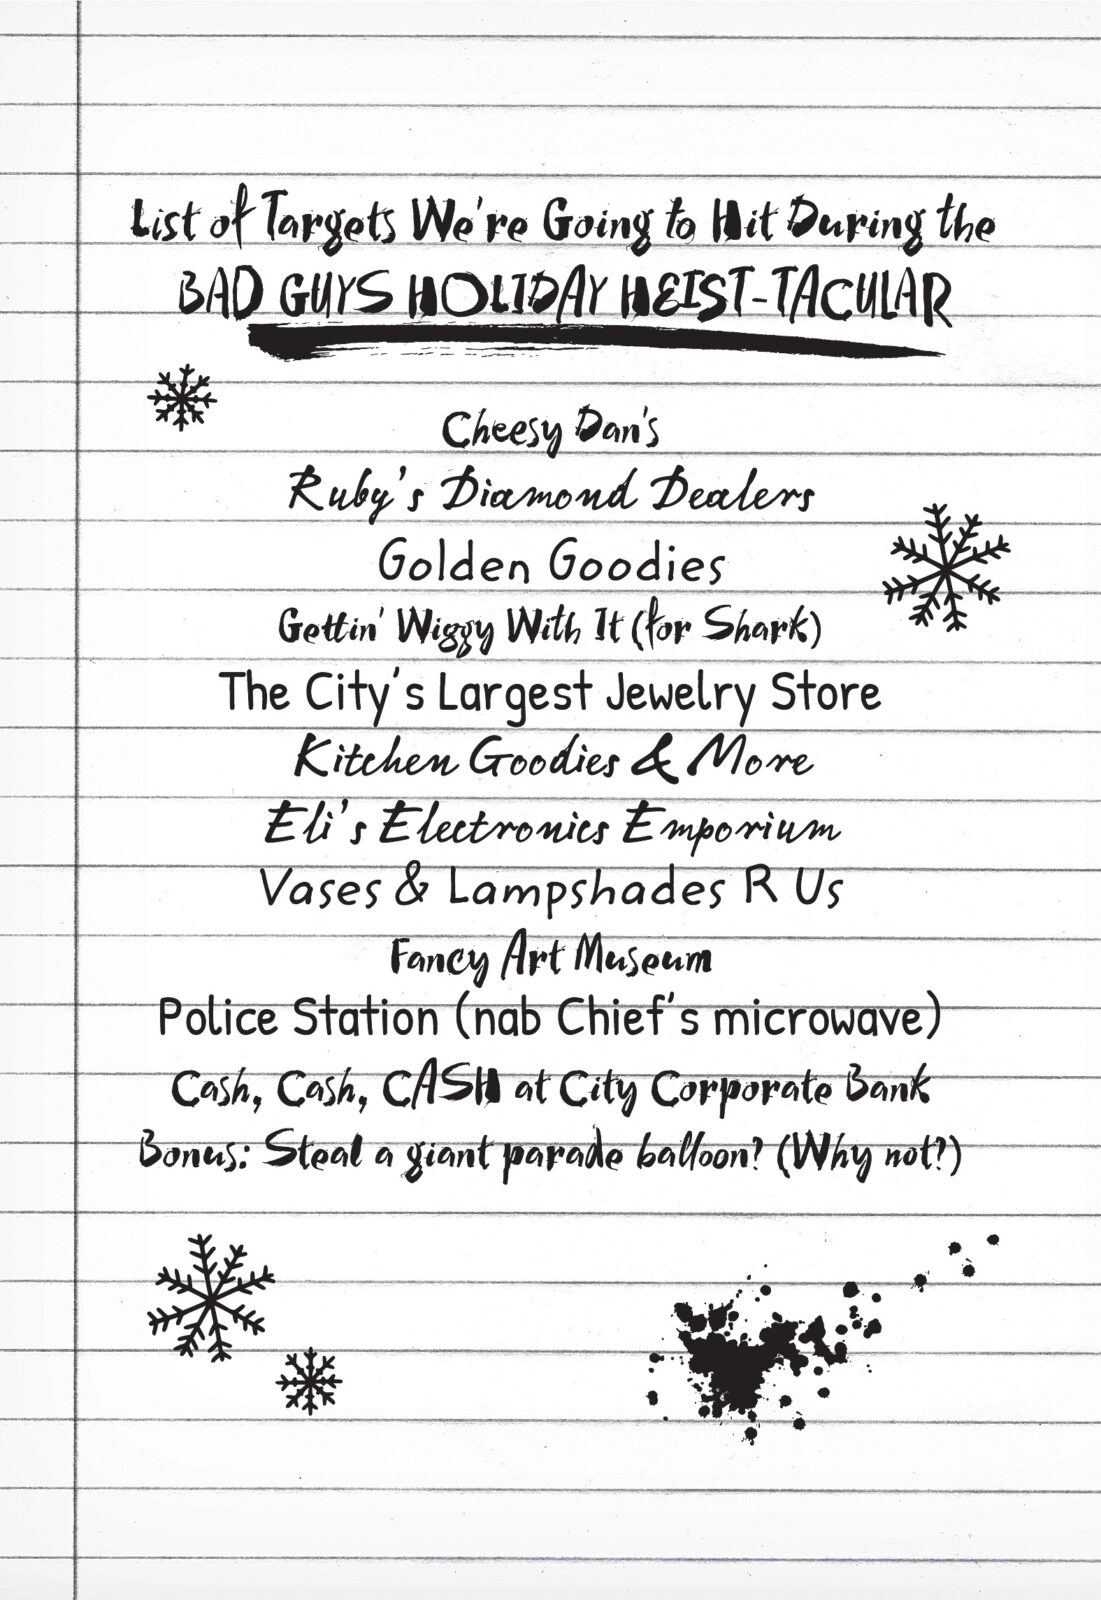 List of Targets We're Going to Hit During the
BAD GUYS HOLIDAY HEIST-TACULAR
Cheesy Dan's
Ruby's Diamond Dealers
Golden Goodies
Gettin' Wiggy With It (for Shark)
The City's Largest Jewelry Store
Kitchen Goodies & More
Eli's Electronics Emporium
Vases & Lampshades R Us
Fancy Art Museum
Police Station (nab Chief's microwave)
Cash, Cash, CASH at City Corporate Bank
Bonus: Steal a giant parade balloon? (Why not?)